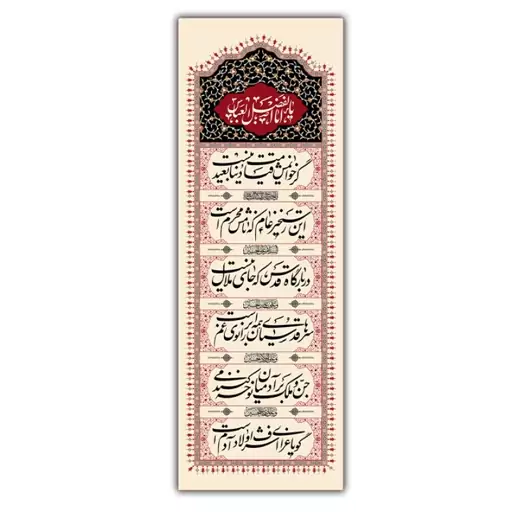 یا اباالفضل العباس
گر خوانمش قیامت دنیا بعید نیست
این رستخیز عام که نامش محرم است
در بارگاه قدس که جای ملال نیست
سرهای قدسیان همه بر زانوی غم است
جن و ملک بر آدمیان نوحه می کنند
گویا عزای اشرف اولاد آدم است